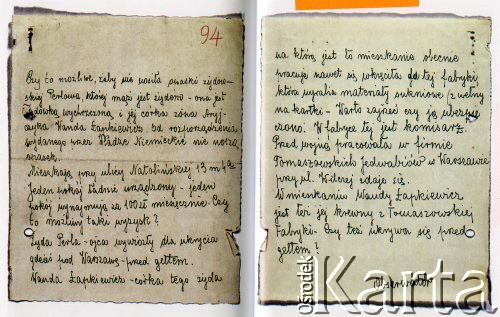 94
Czy to możliwe, żeby nie nosiła opaski żydow-
skiej Perlowa, której mąż jest żydem - ona jest
żydówką wychrzczoną i jej córka żona Aryj-
czyka Wanda Łapkiewicz od rozporządzenia
wydanego przez Władze Niemieckie nie noszą
opasek.
Mieszkają przy ulicy Natolińskiej 13 m
jeden pokój ładnie urządzony - jeden
pokój wynajmują za 100 zł miesięcznie. Czy
to możliwy taki wyzysk?
Żyda Perla - ojca wywiozły dla ukrycia
gdzieś pod Warszawę - przed gettem.
Wanda Łapkiewicz - córka tego żyda
na którą jest to mieszkanie obecnie
pracuje nawet się wkręciła do tej fabryki
która wyrabia materiały sukienne (z wełny
na kartki - Warto zajrzeć czy ją ubezpie-
czono. W fabryce tej jest komisarz.
Przed wojną pracowała w firmie
Tomaszowskich Jedwabiów w Warszawie
przy ul. Wilczej zdaje się.
W mieszkaniu Wandy Łapkiewicz
jest też jej krewny z Tomaszowskiej
Fabryki. Czy też ukrywa się przed
gettem?
Obserwator
ośrodek
Karta